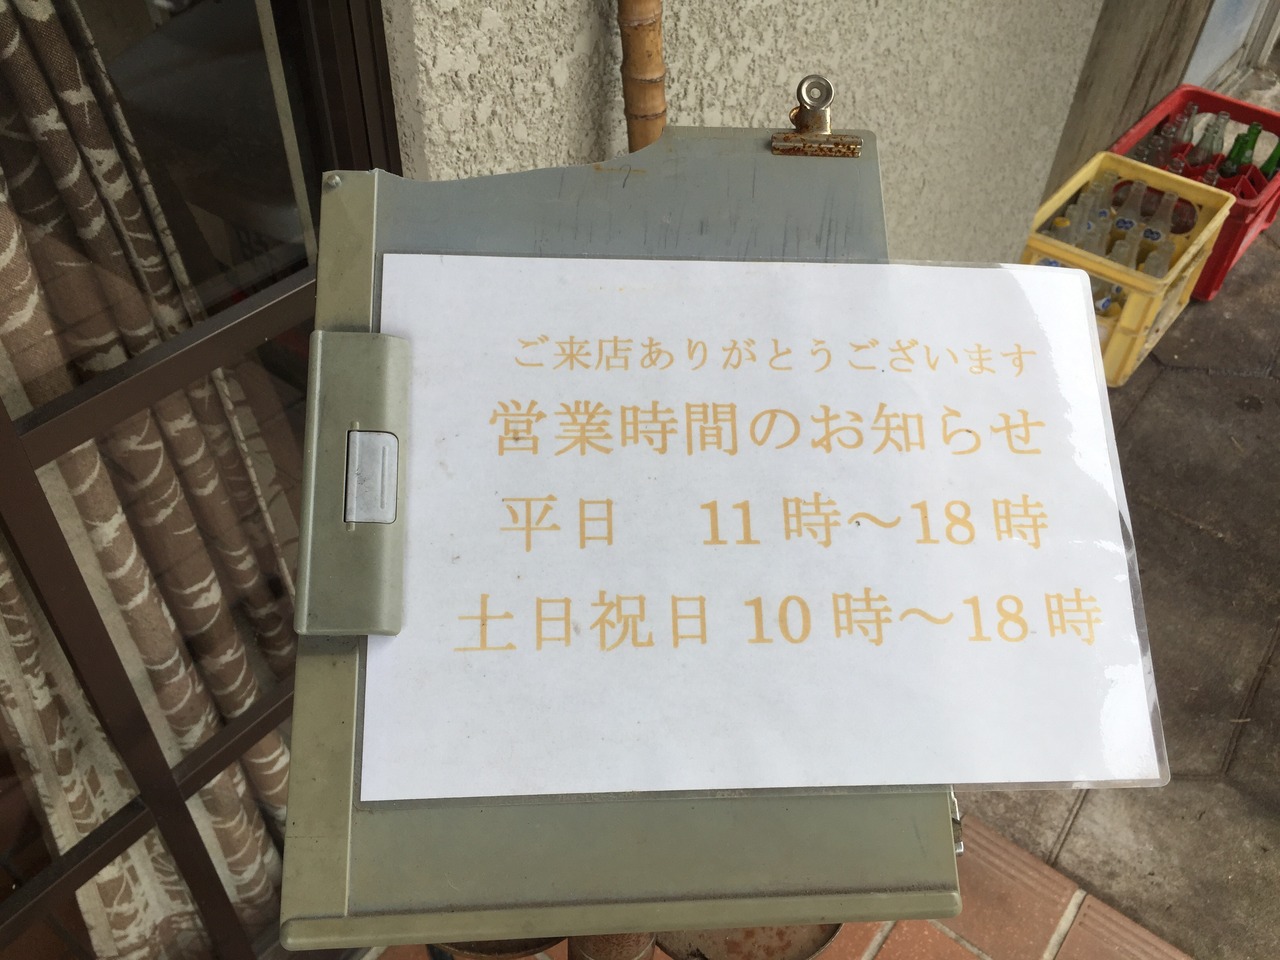 ご来店ありがとうございます
営業時間のお知らせ
平日　11時～18時
土日祝日 10時～18時